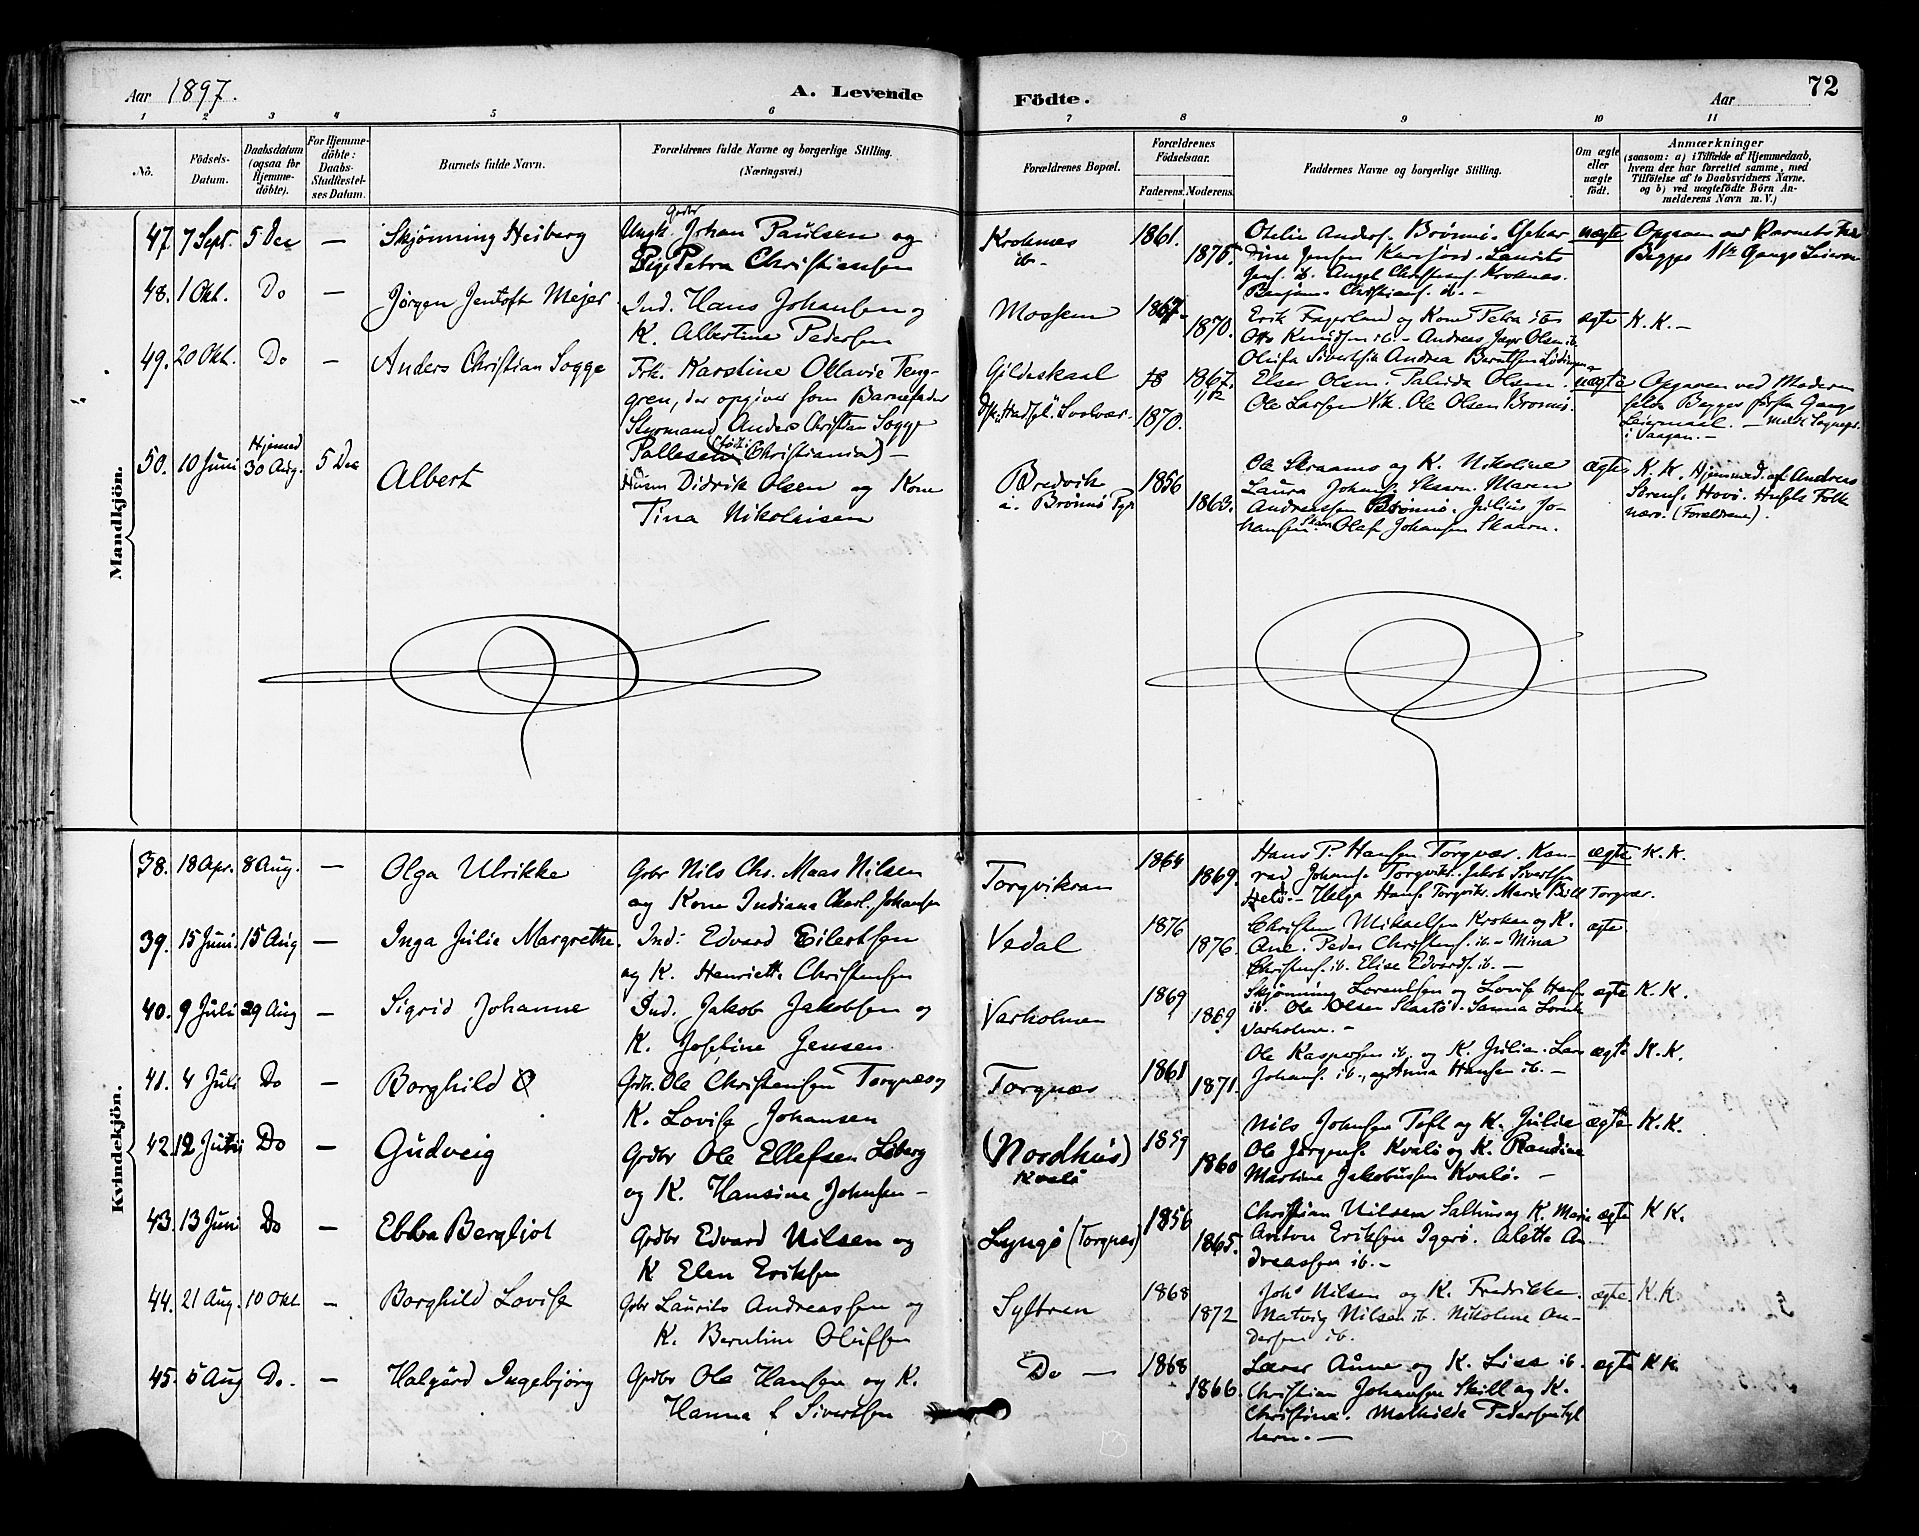 Aar 1897.
A. Levende
Födte.
Aar
72
1 2 3 4 5 6 7 8 9 10 11
No.
Födsels-Datum.
Daabsdatum (ogsaa för Hjemmedöbte).
For Hjemmedöbte: Daabs-Stadfæstelses Datum.
Barnets fulde Navn.
Forældrenes fulde Navne og borgerlige Stilling. (Næringsvei.)
Forældrenes Bopæl.
Forældrenes Födselsaar.
Faderens. Moderens.
Faddernes Navne og borgerlige Stilling.
Om ægte eller uægte födt.
Anmærkninger
(saasom: a) i Tilfælde af Hjemmedaab, hvem der har forrettet samme, med Tilföielse af to Daabsvidners Navne, og b) ved uægtefödte Börn Anmelderens Navn m. V.)
Mandkjön.
47. 7 Sept. 5 Dec — Skjønning Heiberg
Ungk. Grdbr Johan Paulsen og
Pige Petra Christiansen
Kroknes
ib.
1861.
1875.
uægte
48. 1 Okt. Do — Jørgen Jentoft Mejer
Ind. Hans Johansen og
K. Albertine Pedersen
Mossem
1867.
1870.
Erik Fagerland og Kone Petra ib
Otto Knudsen ib – Andreas Jagr Olsen ib.
ægte K.K. –
49. 20 Okt. Do — Anders Christian Sogge
Frk. Karoline Oktavie Teng-
gren, der opgiver som Barnefader
Styrmand Anders Christian Sogge
Pallesen Christiania) –
Gildeskaal
Svolvær.
18
1870.
1867.
Elser Olsen. Palnida Olsen.
Ole Larsen Vik. Ole Olsen Brønnø.
uægte
Opgaven ved Moderen
begges første Gangs
Leiermaal. –
i Vaagan. –
50. 10 Juni Hjemmed 30 Aug. 5 Dec Albert
Husm Didrik Olsen og Kone
Tina Nikolaisen
Bredvik
i Brønnø Pgj.
1856
1863.
Ole Skraams og K. Nikoline
Laura Johans. Skaarn. Maren
Andreassen Brønnø. Julius Jo-
hansen Skarn. Olaf Johansen Skaarn.
ægte
K.K. Hjemmed. af Andreas
(Forældrene).
Kvindekjön.
38. 18 Apr. 8 Aug. — Olga Ulrikke
Grbr Nils Chr. Maas Nilsen
og Kone Indiana Charl. Johansen
Torgvikran
1864
1869.
Hans P. Hansen Torgvær. Kon-
rad Johans. Torgvik. Jakob Sivertsen
Helø. – Helga Hans. Torgvik. Marie Bøll Torgvær.
ægte K.K.
39. 15 Juni. 15 Aug — Inga Julie Margrethe.
Ind: Edvard Eilertsen
og K. Henriette Christensen
Vedal
1876
1876.
Christen Mikaelsen Kroken og K.
Ane. Peder Christens. ib. – Mina
Christens. ib. Elise Edvards. ib. –
ægte
40. 9 Juli 29 Aug — Sigrid Johanne
Ind. Jakob Jakobsen og
K. Josefine Jensen
Varholmen
1869
1869
Skjønning Lorentsen og Lovise Hans.
ib. Ole Olsen Skartø. Sanna Lorents.
Varholmen. –
ægte K.K.
41. 4 Juli Do — Borghild
Grdbr. Ole Christensen Torgnæs og
K. Lovise Johansen
Torgnæs
1861
1871.
Ole Kaspersen ib. og K. Julia. Lars
Johans. ib., og Anna Hansen ib. –
ægte K.K.
42. 12 Juni Do — Gudveig
Grdbr Ole Ellefsen Løberg
og K. Hansine Johnsen –
(Nordhus)
Kvalø
1859
1860
Nils Johnsen Toft og K. Julie
Ole Jørgens. Kvalø og K. Randine
Martine Jakobussen Kvalø. –
ægte K.K.
43. 13 Juni Do — Ebba Bergliot
Grdbr Edvard Nilsen og
K Elen Eriksen
Lyngø (Torgnæs)
1856
1865.
Christian Nilsen Salhus og K. Marie
Anton Eriksen Iggerø. Alette An-
dreassen ib. –
ægte K K.
44. 21 Aug. 10 Okt — Borghild Lovise
Grbr Laurits Andreassen og
K. Berntine Olufsen
Syltren
1868
1872
Johs Nilsen og K. Fredrikke.
Matvig Nilsen ib. Nikoline An-
dersen ib.
ægte. K.K
45. 5 Aug Do. — Halgerd Ingebjørg
Grdbr Ole Hansen og K.
Hanna f Sivertsen
Do —
1868
1866.
Lærer Aune og K. Lisa ib.
Christian Johansen Skill og K.
Christine. Mathilde Pedersen Syl-
tern. –
ægte K K